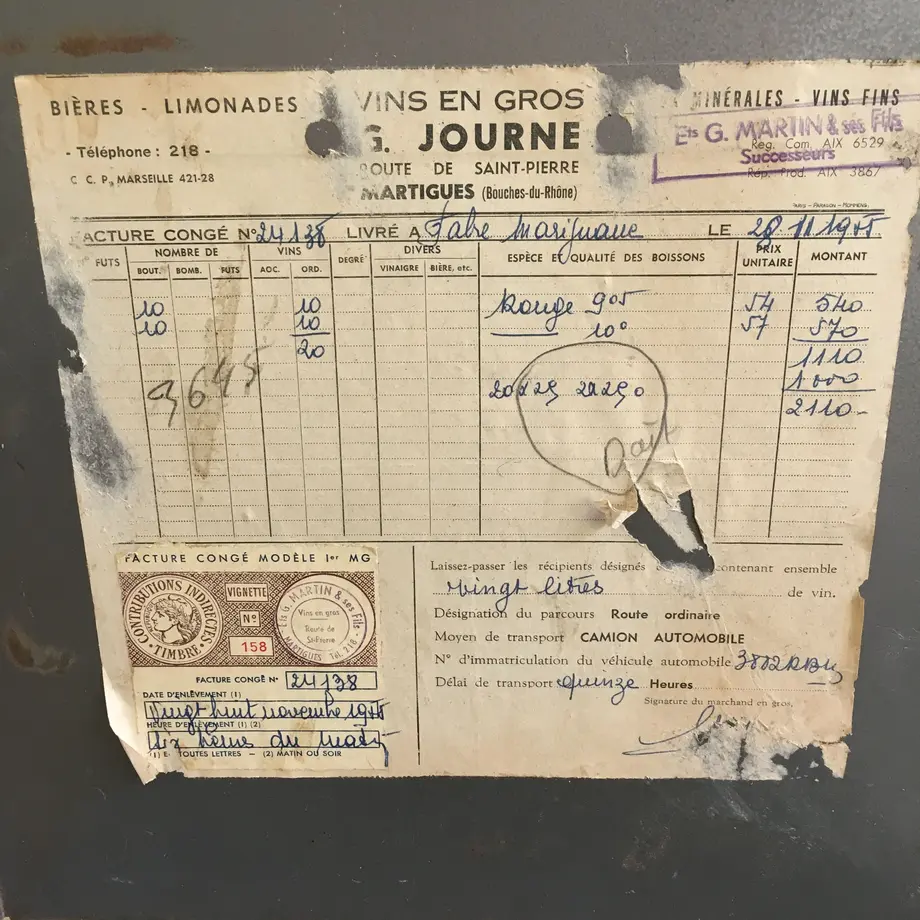 BIÈRES - LIMONADES
VINS EN GROS
MINÉRALES - VINS FINS
G. JOURNE
Ets G. MARTIN & ses Fils
Successeurs
- Téléphone : 218 -
Reg. Com. AIX 6529
C. C. P. MARSEILLE 421-28
ROUTE DE SAINT-PIERRE
Rép. Prod. AIX 3867
MARTIGUES (Bouches-du-Rhône)
FACTURE CONGÉ N° 24138 LIVRÉ A Fabre Marignane LE 28 11 1955
FUTS NOMBRE DE VINS DEGRÉ DIVERS ESPÈCE ET QUALITÉ DES BOISSONS PRIX UNITAIRE MONTANT
BOUT. BOMB. FUTS AOC. ORD. VINAIGRE BIÈRE, etc.
10 10 Rouge 9°5 54 540
10 10 10° 57 570
20 1110
1000
9645
2110-
FACTURE CONGÉ MODÈLE 1er MG
CONTRIBUTIONS INDIRECTES
TIMBRE
VIGNETTE
N°
158
Ets G. MARTIN & ses Fils
Vins en gros
Route de
St-Pierre
MARTIGUES Tél. 218
FACTURE CONGÉ N° 24138
DATE D'ENLÈVEMENT (1)
Vingt huit novembre 1955
HEURE D'ENLÈVEMENT (1) (2)
Six heures du matin
TOUTES LETTRES - (2) MATIN OU SOIR
Laissez-passer les récipients désignés contenant ensemble
vingt litres de vin.
Désignation du parcours Route ordinaire
Moyen de transport CAMION AUTOMOBILE
N° d'immatriculation du véhicule automobile
Délai de transport quinze Heures
Signature du marchand en gros,